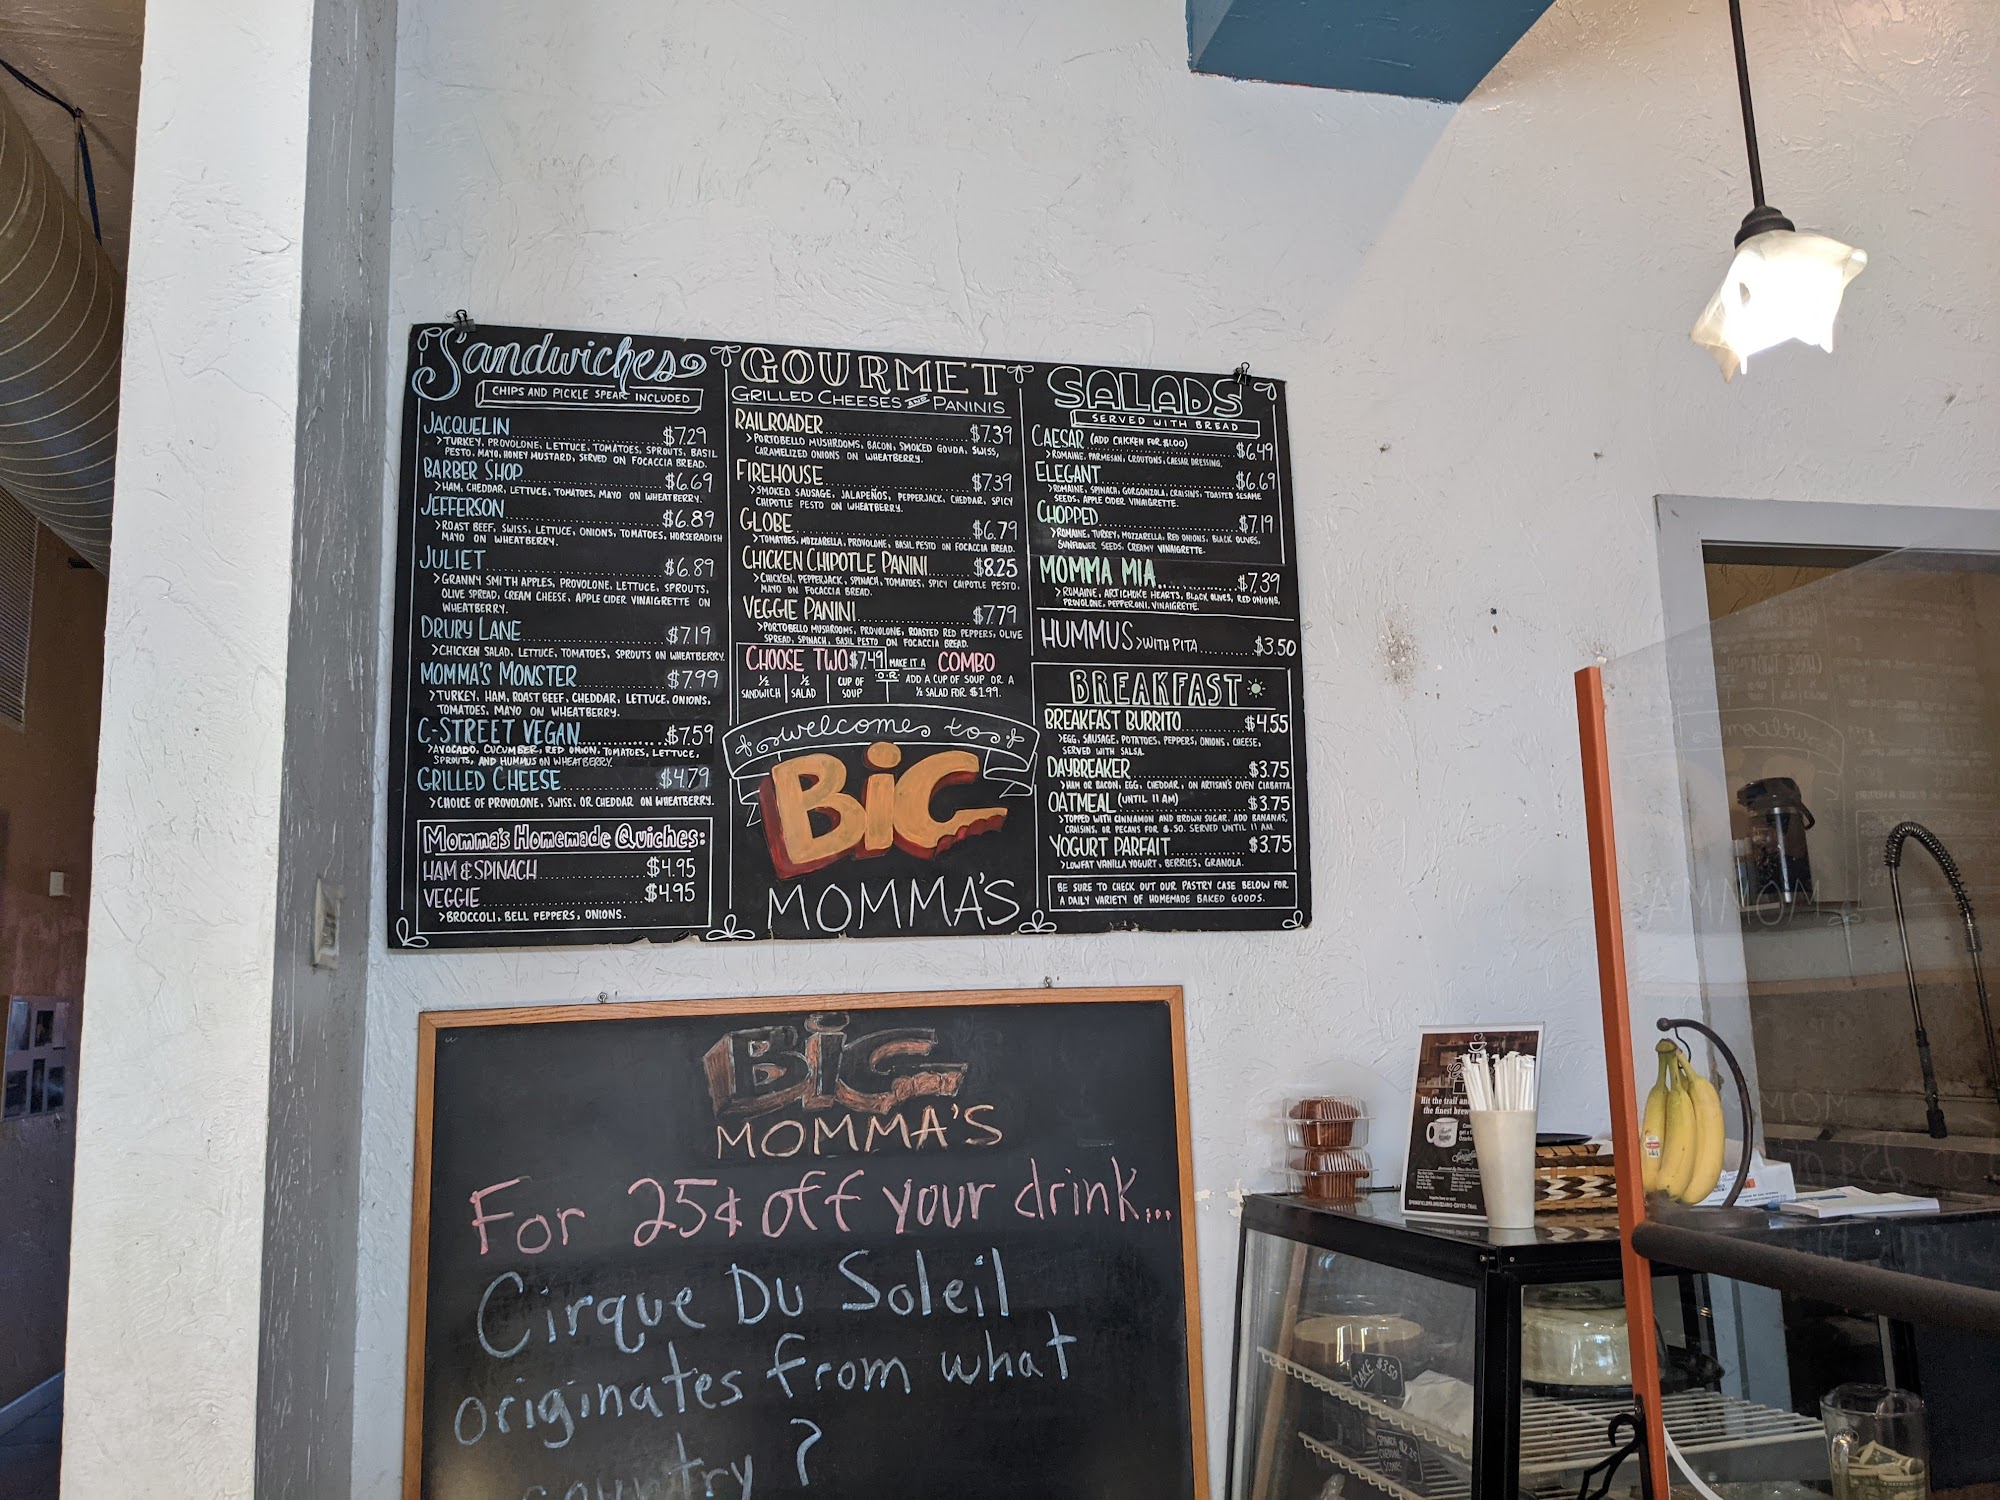 Sandwiches
CHIPS AND PICKLE SPEAR INCLUDED
JACQUELIN $7.29
>TURKEY, PROVOLONE, LETTUCE, TOMATOES, SPROUTS, BASIL
PESTO, MAYO, HONEY MUSTARD, SERVED ON FOCACCIA BREAD.
BARBER SHOP $6.69
>HAM, CHEDDAR, LETTUCE, TOMATOES, MAYO ON WHEATBERRY.
JEFFERSON $6.89
>ROAST BEEF, SWISS, LETTUCE, ONIONS, TOMATOES, HORSERADISH
MAYO ON WHEATBERRY.
JULIET $6.89
>GRANNY SMITH APPLES, PROVOLONE, LETTUCE, SPROUTS,
OLIVE SPREAD, CREAM CHEESE, APPLE CIDER VINAIGRETTE ON
WHEATBERRY.
DRURY LANE $7.19
>CHICKEN SALAD, LETTUCE, TOMATOES, SPROUTS ON WHEATBERRY.
MOMMA'S MONSTER $7.99
>TURKEY, HAM, ROAST BEEF, CHEDDAR, LETTUCE, ONIONS,
TOMATOES, MAYO ON WHEATBERRY.
C-STREET VEGAN $7.59
>AVOCADO, CUCUMBER, RED ONION, TOMATOES, LETTUCE,
SPROUTS, AND HUMMUS ON WHEATBERRY.
GRILLED CHEESE $4.79
>CHOICE OF PROVOLONE, SWISS, OR CHEDDAR ON WHEATBERRY.
Momma's Homemade Quiches:
HAM & SPINACH $4.95
VEGGIE $4.95
>BROCCOLI, BELL PEPPERS, ONIONS.
GOURMET
GRILLED CHEESES AND PANINIS
RAILROADER $7.39
>PORTOBELLO MUSHROOMS, BACON, SMOKED GOUDA, SWISS,
CARAMELIZED ONIONS ON WHEATBERRY.
FIREHOUSE $7.39
>SMOKED SAUSAGE, JALAPEÑOS, PEPPERJACK, CHEDDAR, SPICY
CHIPOTLE PESTO ON WHEATBERRY.
GLOBE $6.79
>TOMATOES, MOZZARELLA, PROVOLONE, BASIL PESTO ON FOCACCIA BREAD.
CHICKEN CHIPOTLE PANINI $8.25
>CHICKEN, PEPPERJACK, SPINACH, TOMATOES, SPICY CHIPOTLE PESTO,
MAYO ON FOCACCIA BREAD.
VEGGIE PANINI $7.79
>PORTOBELLO MUSHROOMS, PROVOLONE, ROASTED RED PEPPERS, OLIVE
SPREAD, SPINACH, BASIL PESTO ON FOCACCIA BREAD.
CHOOSE TWO $7.49
½ SANDWICH | ½ SALAD | CUP OF SOUP
O.R.
MAKE IT A COMBO
ADD A CUP OF SOUP OR A
½ SALAD FOR $1.99.
welcome to
BiG
MOMMA'S
SALADS
SERVED WITH BREAD
CAESAR (ADD CHICKEN FOR $1.00) $6.49
>ROMAINE, PARMESAN, CROUTONS, CAESAR DRESSING.
ELEGANT $6.69
>ROMAINE, SPINACH, GORGONZOLA, CRAISINS, TOASTED SESAME
SEEDS, APPLE CIDER VINAIGRETTE.
CHOPPED $7.19
>ROMAINE, TURKEY, MOZZARELLA, RED ONIONS, BLACK OLIVES,
SUNFLOWER SEEDS, CREAMY VINAIGRETTE.
MOMMA MIA $7.39
>ROMAINE, ARTICHOKE HEARTS, BLACK OLIVES, RED ONIONS,
PROVOLONE, PEPPERONI, VINAIGRETTE.
HUMMUS >WITH PITA $3.50
BREAKFAST
BREAKFAST BURRITO $4.55
>EGG, SAUSAGE, POTATOES, PEPPERS, ONIONS, CHEESE,
SERVED WITH SALSA.
DAYBREAKER $3.75
>HAM OR BACON, EGG, CHEDDAR, ON ARTISAN'S OVEN CIABATTA.
OATMEAL (UNTIL 11 AM) $3.75
>TOPPED WITH CINNAMON AND BROWN SUGAR. ADD BANANAS,
CRAISINS, OR PECANS FOR $.50. SERVED UNTIL 11 AM.
YOGURT PARFAIT $3.75
>LOWFAT VANILLA YOGURT, BERRIES, GRANOLA.
BE SURE TO CHECK OUT OUR PASTRY CASE BELOW FOR
A DAILY VARIETY OF HOMEMADE BAKED GOODS.
BiG
MOMMA'S
For 25¢ off your drink...
Cirque Du Soleil
originates from what
country?
Hit the trail
the finest
CAKE $3.50
SPINACH
CHEDDAR $2.25
SCONES